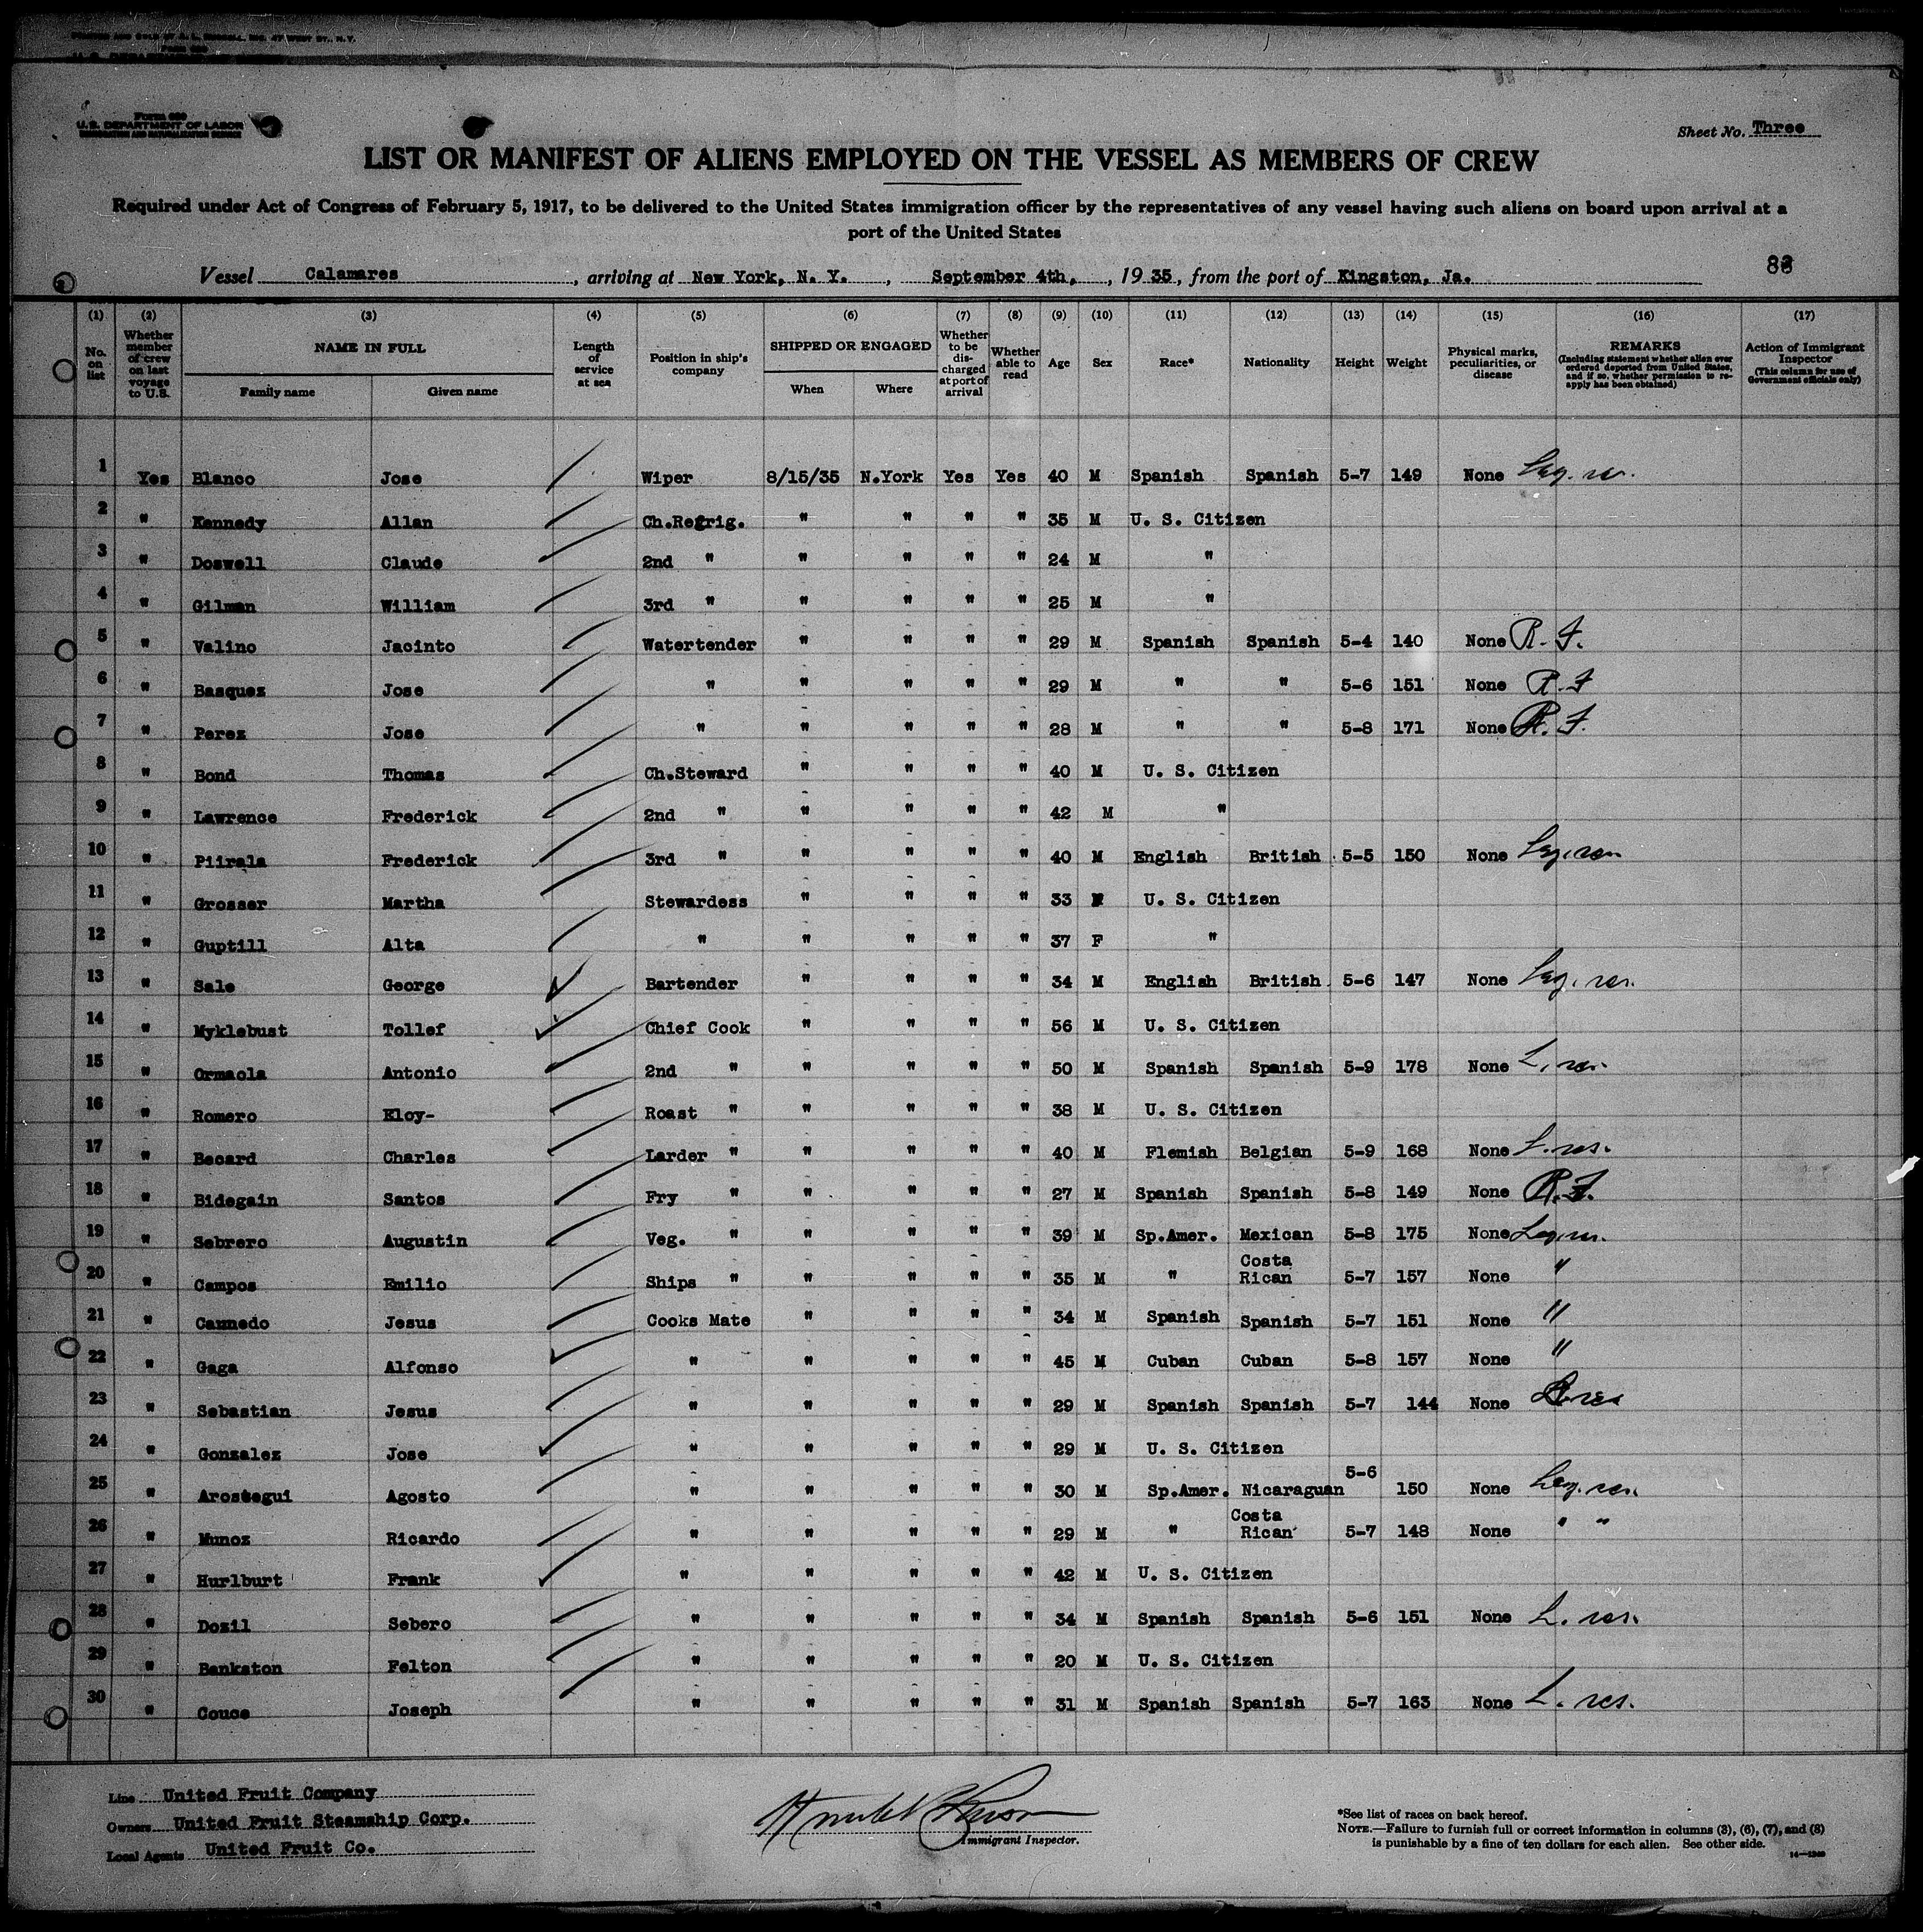 Form 680
U. S. DEPARTMENT OF LABOR
IMMIGRATION AND NATURALIZATION SERVICE
Sheet No. Three
LIST OR MANIFEST OF ALIENS EMPLOYED ON THE VESSEL AS MEMBERS OF CREW
Required under Act of Congress of February 5, 1917, to be delivered to the United States immigration officer by the representatives of any vessel having such aliens on board upon arrival at a
port of the United States
Vessel Calamares, arriving at New York, N. Y., September 4th, 1935, from the port of Kingston, Ja.
(1) No. on list (2) Whether member of crew on last voyage to U.S. (3) NAME IN FULL Family name Given name (4) Length of service at sea (5) Position in ship's company (6) SHIPPED OR ENGAGED When Where (7) Whether to be discharged at port of arrival (8) Whether able to read (9) Age (10) Sex (11) Race* (12) Nationality (13) Height (14) Weight (15) Physical marks, peculiarities, or disease (16) REMARKS (Including statement whether alien ever ordered deported from United States, and if so, whether permission to reapply has been obtained) (17) Action of Immigrant Inspector (This column for use of Government officials only)
1 Yes Blanco Jose Wiper 8/15/35 N.York Yes Yes 40 M Spanish Spanish 5-7 149 None Leg. res.
2 " Kennedy Allan Ch.Refrig. " " " " 35 M U. S. Citizen
3 " Doswell Claude 2nd " " " " " 24 M "
4 " Gilman William 3rd " " " " " 25 M "
5 " Valino Jacinto Watertender " " " " 29 M Spanish Spanish 5-4 140 None R. F.
6 " Basquez Jose " " " " " 29 M " " 5-6 151 None R. F
7 " Perez Jose " " " " " 28 M " " 5-8 171 None R. F.
8 " Bond Thomas Ch.Steward " " " " 40 M U. S. Citizen
9 " Lawrence Frederick 2nd " " " " " 42 M "
10 " Piirala Frederick 3rd " " " " " 40 M English British 5-5 150 None Leg. res.
11 " Grosser Martha Stewardess " " " " 33 F U. S. Citizen
12 " Guptill Alta " " " " " 37 F "
13 " Sale George Bartender " " " " 34 M English British 5-6 147 None Leg. res.
14 " Myklebust Tollef Chief Cook " " " " 56 M U. S. Citizen
15 " Ormaola Antonio 2nd " " " " " 50 M Spanish Spanish 5-9 178 None L. res.
16 " Romero Eloy- Roast " " " " " 38 M U. S. Citizen
17 " Becard Charles Larder " " " " " 40 M Flemish Belgian 5-9 168 None L. res.
18 " Bidegain Santos Fry " " " " " 27 M Spanish Spanish 5-8 149 None R. F.
19 " Sebrero Augustin Veg. " " " " " 39 M Sp.Amer. Mexican 5-8 175 None Leg. res.
20 " Campos Emilio Ships " " " " " 35 M " Costa Rican 5-7 157 None "
21 " Cannedo Jesus Cooks Mate " " " " 34 M Spanish Spanish 5-7 151 None "
22 " Gaga Alfonso " " " " " 45 M Cuban Cuban 5-8 157 None "
23 " Sebastian Jesus " " " " " 29 M Spanish Spanish 5-7 144 None L. res
24 " Gonzalez Jose " " " " " 29 M U. S. Citizen
25 " Arostegui Agosto " " " " " 30 M Sp.Amer. Nicaraguan 5-6 150 None Leg. res.
26 " Munoz Ricardo " " " " " 29 M " Costa Rican 5-7 148 None " "
27 " Hurlburt Frank " " " " " 42 M U. S. Citizen
28 " Dozil Sebero " " " " " 34 M Spanish Spanish 5-6 151 None L. res.
29 " Bankston Felton " " " " " 20 M U. S. Citizen
30 " Couce Joseph " " " " " 31 M Spanish Spanish 5-7 163 None L. res.
Line United Fruit Company
Owners United Fruit Steamship Corp.
Local Agents United Fruit Co.
Immigrant Inspector.
*See list of races on back hereof.
NOTE.—Failure to furnish full or correct information in columns (3), (6), (7), and (8)
is punishable by a fine of ten dollars for each alien. See other side.